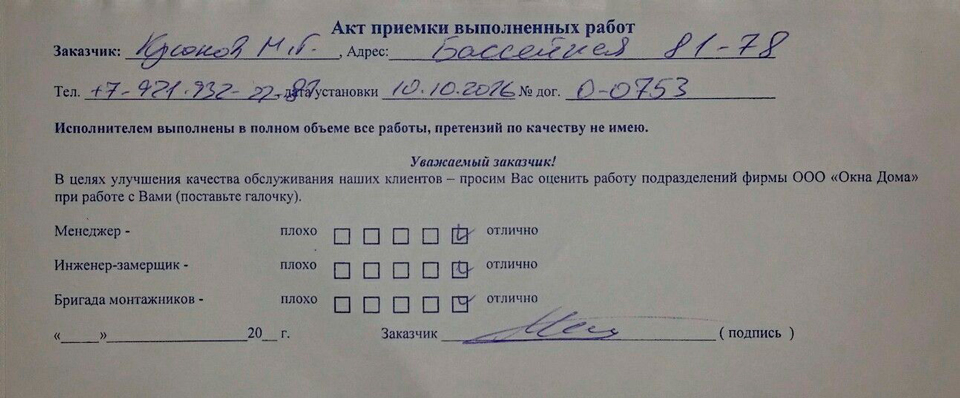 Акт приемки выполненных работ
Заказчик: М.Г., Адрес: Бассейная 81-78
Тел. +7-921-932-22- дата установки 10.10.2016 № дог. О-0753
Исполнителем выполнены в полном объеме все работы, претензий по качеству не имею.
Уважаемый заказчик!
В целях улучшения качества обслуживания наших клиентов – просим Вас оценить работу подразделений фирмы ООО «Окна Дома»
при работе с Вами (поставьте галочку).
Менеджер - плохо отлично
Инженер-замерщик - плохо отлично
Бригада монтажников - плохо отлично
«____»____________________20__ г. Заказчик ______________________________( подпись )